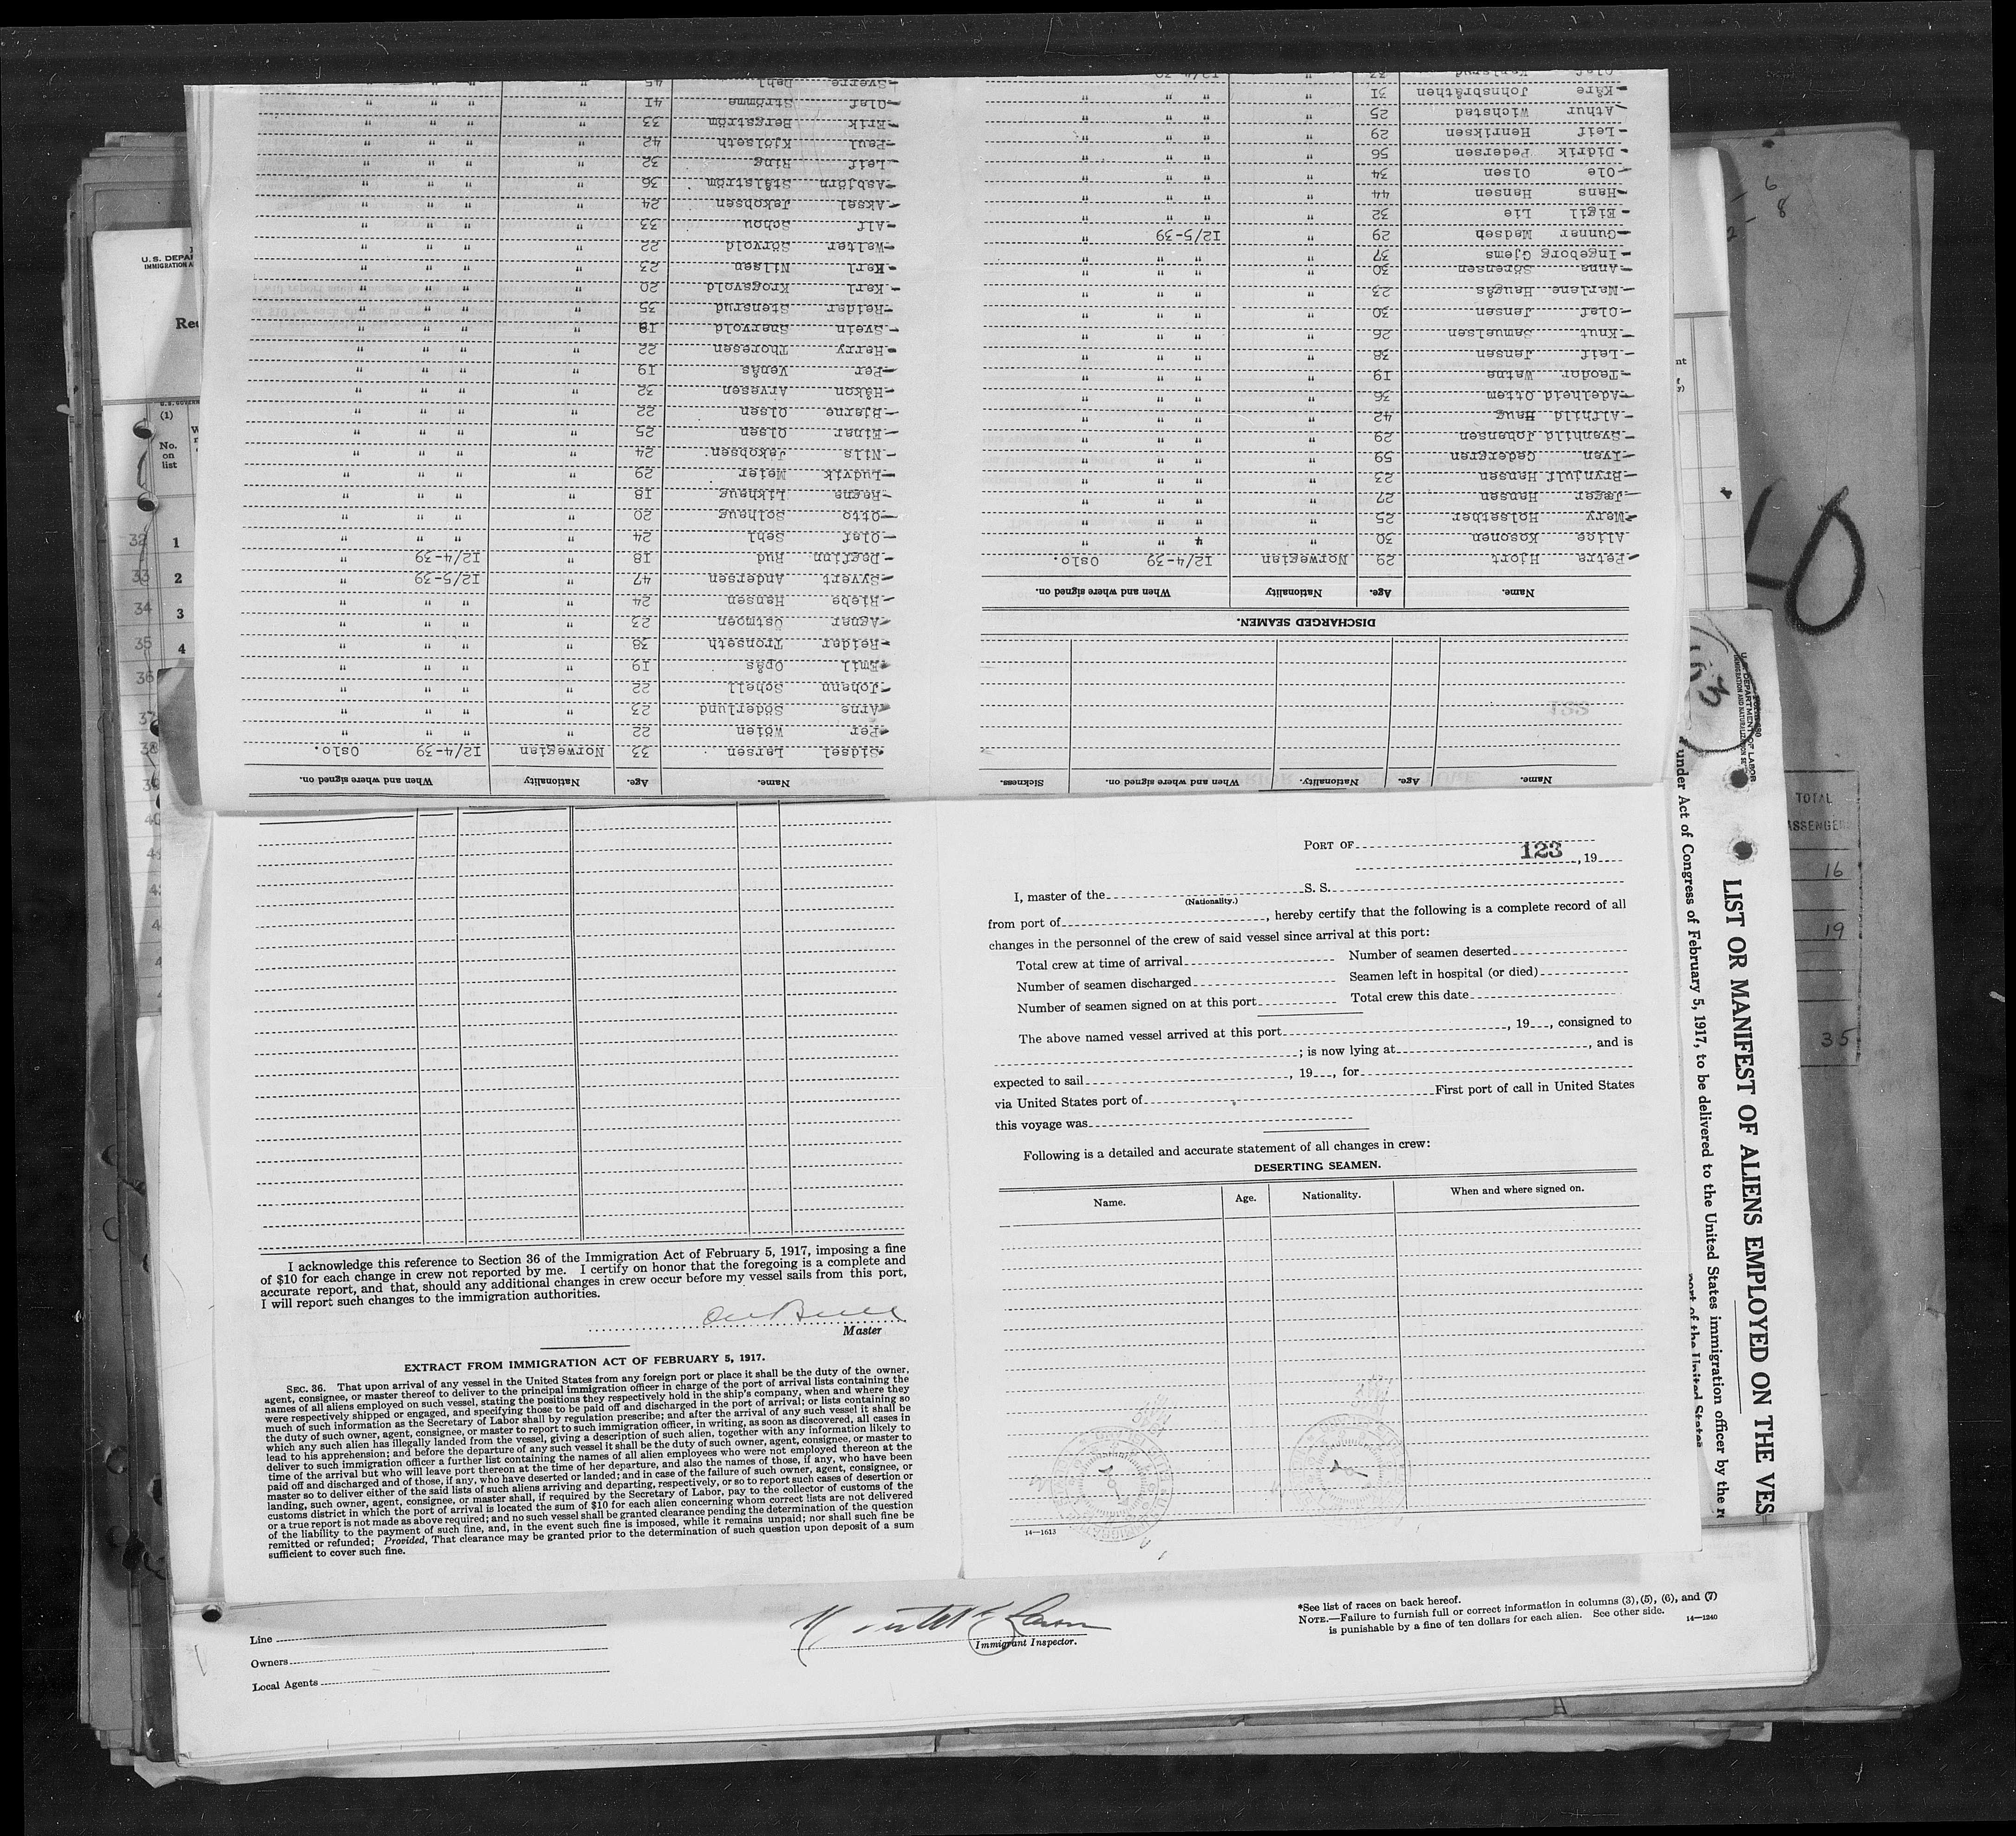 DISCHARGED SEAMEN.
Name. Age. Nationality When and where signed on.
Petra Hjort 29 Norwegian 12/4-39 Oslo.
Alice Kosonen 30 " " " "
Mary Holsether 25 " " " "
Jæger Hansen 27 " " " "
Brynjulf Hansen 23 " " " "
Ivan Cedergren 59 " " " "
Svanhild Johansen 29 " " " "
Alfhild Haug 42 " " " "
Adelheid Ottem 36 " " " "
Teodor Watne 19 " " " "
Leif Jensen 38 " " " "
Knut Samuelsen 26 " " " "
Olaf Jensen 30 " " " "
Marlene Haugås 23 " " " "
Anna Sörensen 30 " " " "
Ingeborg Gjems 37 " " " "
Gunnar Madsen 29 " 12/5-39 "
Eigil Lie 32 " " " "
Hans Hansen 44 " " " "
Ole Olsen 34 " " " "
Didrik Pedersen 56 " " " "
Leif Henriksen 29 " " " "
Athur Wichstad 25 " " " "
Kåre Johnsbråthen 31 " " " "
Olaf Karlsrud 33 " 12/4-39 "
Name. Age. Nationality When and where signed on.
Sidsel Larsen 33 Norwegian 12/4-39 Oslo.
Per Wöien 22 " " " "
Arne Söderlund 23 " " " "
Johann Schell 22 " " " "
Emil Opås 19 " " " "
Reidar Tronseth 38 " " " "
Agnar Östmoen 23 " " " "
Riebe Hansen 24 " " " "
Syvert Andersen 47 " 12/5-39 "
Dagfinn Rud 18 " 12/4-39 "
Olaf Sehl 24 " " " "
Otto Solhaug 20 " " " "
Ragna Likhaug 18 " " " "
Ludvik Meier 29 " " " "
Nils Jakobsen 24 " " " "
Einar Olsen 25 " " " "
Bjarne Olsen 22 " " " "
Håkon Arvesen 32 " " " "
Per Venås 19 " " " "
Harry Thoresen 22 " " " "
Svein Snervold 18 " " " "
Reidar Stensrud 35 " " " "
Karl Krogsvold 20 " " " "
Karl Nilsen 23 " " " "
Walter Sörvold 22 " " " "
Alf Schou 33 " " " "
Aksel Jakobsen 24 " " " "
Asbjörn Stålström 36 " " " "
Leif Ring 32 " " " "
Paul Kjölseth 42 " " " "
Erik Bergström 33 " " " "
Olaf Strömme 41 " " " "
Sverre Dahl 45 " " " "
Name. Age. Nationality. When and where signed on. Sickness.
U.S. DEPAR
IMMIGRATION A
Rec
U.S. GOVERN
(1)
No.
on
list
32 1
33 2
34 3
35 4
36
37
38
39
40
I acknowledge this reference to Section 36 of the Immigration Act of February 5, 1917, imposing a fine
of $10 for each change in crew not reported by me. I certify on honor that the foregoing is a complete and
accurate report, and that, should any additional changes in crew occur before my vessel sails from this port,
I will report such changes to the immigration authorities.
Master
EXTRACT FROM IMMIGRATION ACT OF FEBRUARY 5, 1917.
SEC. 36. That upon arrival of any vessel in the United States from any foreign port or place it shall be the duty of the owner,
agent, consignee, or master thereof to deliver to the principal immigration officer in charge of the port of arrival lists containing the
names of all aliens employed on such vessel, stating the positions they respectively hold in the ship's company, when and where they
were respectively shipped or engaged, and specifying those to be paid off and discharged in the port of arrival; or lists containing so
much of such information as the Secretary of Labor shall by regulation prescribe; and after the arrival of any such vessel it shall be
the duty of such owner, agent, consignee, or master to report to such immigration officer, in writing, as soon as discovered, all cases in
which any such alien has illegally landed from the vessel, giving a description of such alien, together with any information likely to
lead to his apprehension; and before the departure of any such vessel it shall be the duty of such owner, agent, consignee, or master to
deliver to such immigration officer a further list containing the names of all alien employees who were not employed thereon at the
time of the arrival but who will leave port thereon at the time of her departure, and also the names of those, if any, who have been
paid off and discharged and of those, if any, who have deserted or landed; and in case of the failure of such owner, agent, consignee, or
master so to deliver either of the said lists of such aliens arriving and departing, respectively, or so to report such cases of desertion or
landing, such owner, agent, consignee, or master shall, if required by the Secretary of Labor, pay to the collector of customs of the
customs district in which the port of arrival is located the sum of $10 for each alien concerning whom correct lists are not delivered
or a true report is not made as above required; and no such vessel shall be granted clearance pending the determination of the question
of the liability to the payment of such fine, and, in the event such fine is imposed, while it remains unpaid; nor shall such fine be
remitted or refunded; Provided, That clearance may be granted prior to the determination of such question upon deposit of a sum
sufficient to cover such fine.
PORT OF
123 , 19
I, master of the S. S.
(Nationality.)
from port of , hereby certify that the following is a complete record of all
changes in the personnel of the crew of said vessel since arrival at this port:
Total crew at time of arrival Number of seamen deserted
Number of seamen discharged Seamen left in hospital (or died)
Number of seamen signed on at this port Total crew this date
The above named vessel arrived at this port , 19 , consigned to
; is now lying at , and is
expected to sail , 19 , for
via United States port of First port of call in United States
this voyage was
Following is a detailed and accurate statement of all changes in crew:
DESERTING SEAMEN.
Name. Age. Nationality. When and where signed on.
14—1613
Line
Owners
Local Agents
Immigrant Inspector.
*See list of races on back hereof.
NOTE.—Failure to furnish full or correct information in columns (3), (5), (6), and (7)
is punishable by a fine of ten dollars for each alien. See other side. 14—1240
U. S. DEPARTMENT OF LABOR
LIST OR MANIFEST OF ALIENS EMPLOYED ON THE VES
under Act of Congress of February 5, 1917, to be delivered to the United States immigration officer by the r
port of the United States
6
8
TOTAL
ASSENGER
16
19
35